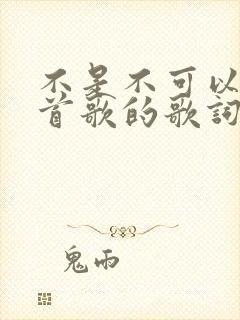 不是不可以
首歌的歌詞
鬼雨